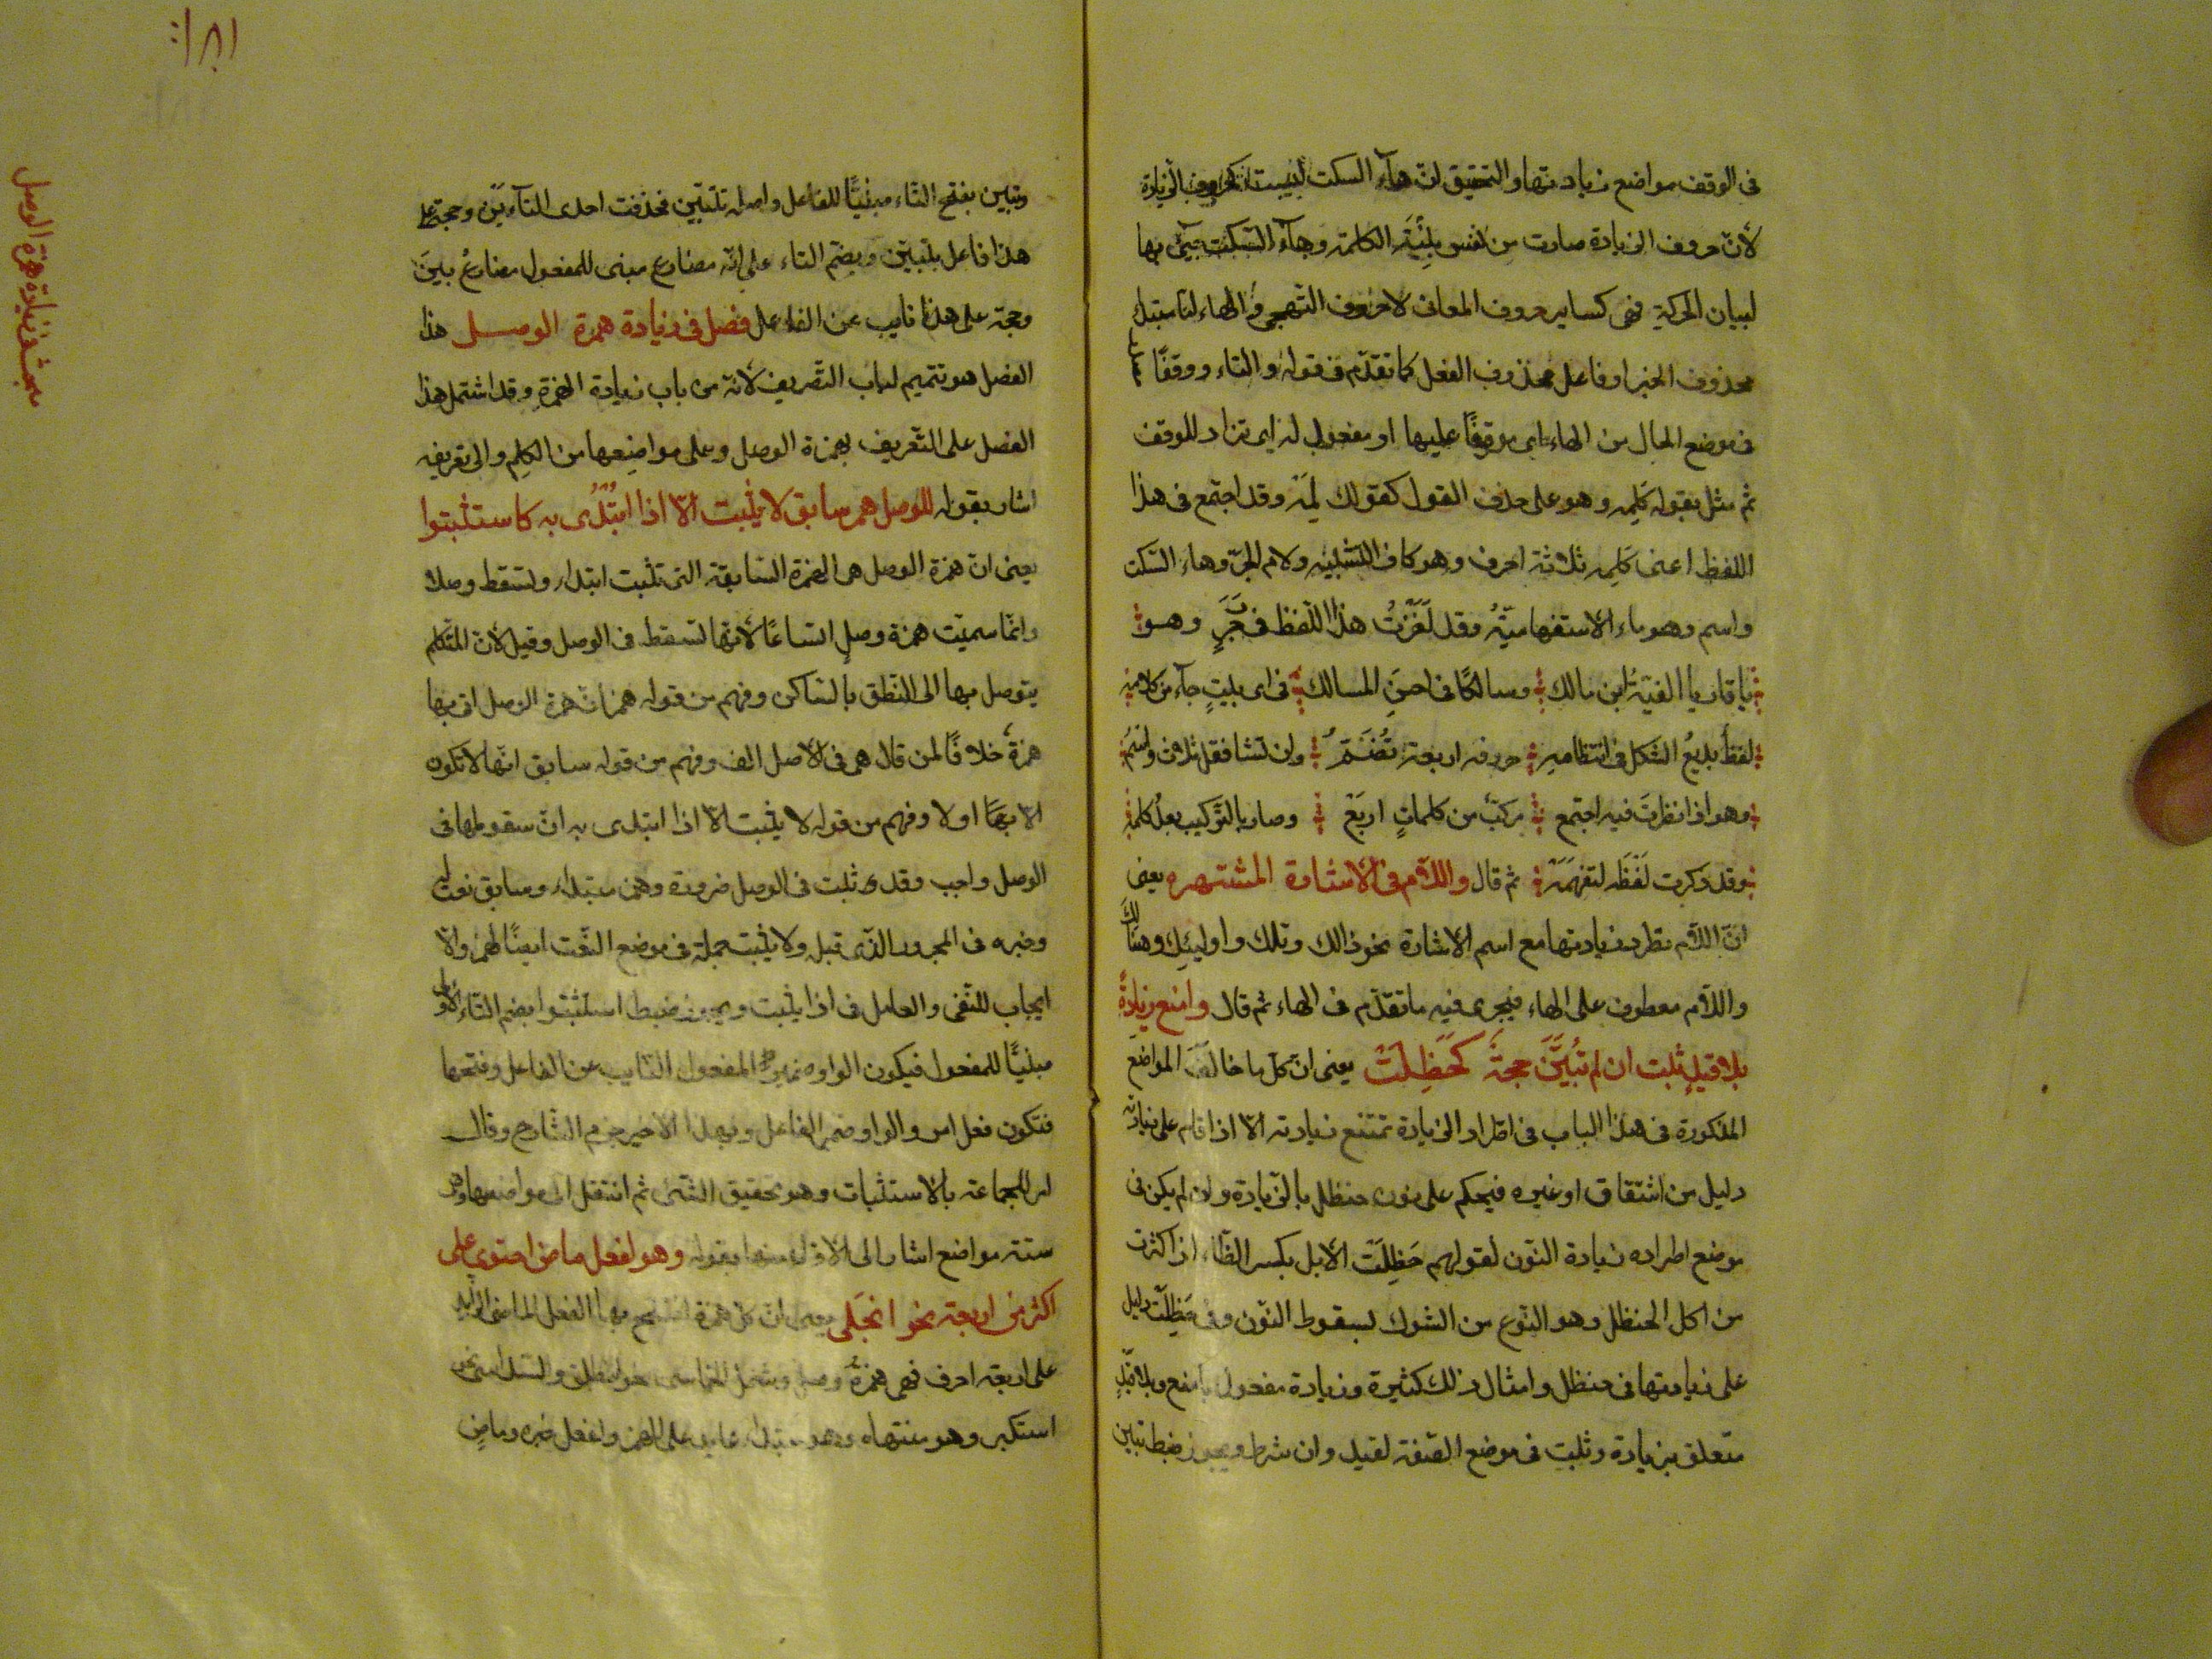 فى الوقف مواضع زيادتها والتحقيق ان هآء السكت ليست كحروف الزيادة
لأن حروف الزيادة صارت من نفس بِنْيَةِ الكلمة وهآء السكت جيئ بها
لبيان الحركةِ فهى كساير حروف المعانى لا حروف التهجى وَالهاء امّا مبتداء
محذوف الخبر او فاعل محذوف الفعل كما تقدّم فى قوله والتاء ووقفًا
فى موضع الحال من الهاء اى موقوفًا عليها او مفعول له اى تزاد للوقف
ثم مثل بقوله كَلِمَه وهو على حذف القول كقولك لِمَه وقد اجتمع فى هذا
اللفظ اعنى كَلِمَه ثلاثة احرف وهو كاف التشبيه ولام الجرّ وهاء السّكت
واسم وهو ماء الاستفهاميّة وقد لَغَزْتُ هذا اللّفظ فى رَجَزٍ وهو
يا قاريا الفيّة ابن مالك وسالكًا فى احسَنِ المسالك فى اى بيتٍ جآء من كلامه
لفظ بديعُ الشكل فى انتظامه حروفه اربعة تُضَمّ وان تشا فقل ثلاث واسمُ
وهو اذا نظرتَ فيه اجتمع مركبٌ من كلماتٍ اربَعْ وصار بالتّركيب بعدُ كلمه
وقد ذكرت لَفْظَه لتفهَمَهْ ثم قال واللّام فى الاشارة المشتهره يعنى
انّ اللّام تطرد زيادتها مع اسم الاشارة نحو ذالك وتلك واوليئك وهنالك
واللّام معطوف على الهاء فيجرى فيه ما تقدّم فى الهاء ثم قال وامنع زيادةً
بلا قيدٍ ثبت ان لم تُبيَّنَ حجةٌ كَحَظِلَتْ يعنى انّ كل ما خالف المواضع
المذكورة فى هذا الباب فى اطّراد الزيادة تمتنع زيادته الّا اذا قام على زيادته
دليل من اشتقاق او غيره فيحكم على نون حنظل بالزّيادة وان لم يكن فى
موضع اطراده زيادة النّون لقولهم حَظِلَت الابل بكسر الظّاء اذا اكثرت
من اكل الحنظل وهو النّوع من الشوك لسقوط النّون وفى حَظِلَت دليل
على زيادتها فى حنظل وامثال ذلك كثيرة وزيادة مفعول بامنع وبلا قيدٍ
متعلق بزيادة وثبت فى موضع الصّفة لقيد وان شرط ويجوز ضبط تبين
وتبين بفتح التّاء مبنيًّا للفاعل واصله تتبيّن فحذفت احدى التآءين وحجة على
هذا فاعل بتبيّن وبضم التاء على انّه مضارع مبنى للمفعول مضارعُ بيّنَ
وحجة على هذا نايب عن الفاعل فصل فى زيادة همزة الوصل هذا
الفصل هو تتميم لباب التّصريف لانّه من باب زيادة الهمزةِ وقد اشتمل هذا
الفصل على التّعريف بهمزة الوصل وعلى مواضِعها من الكلِم والى تعريفه
اشار بقوله للوصل همز سابق لا يثبت الّا اذا ابْتُدِى به كاستثبتوا
يعنى انّ همزة الوصل هى الهمزة السّابقة التى تثبت ابتداء وتسقط وصلا
وانّما سميّت همزة وصلٍ اتساعًا لأنّها تسقط فى الوصل وقيل لأن المتكلم
يتوصل بها الى النّطق بالسّاكن وفهم من قوله همز انّ همزة الوصل اتى بها
همزةً خلافًا لمن قال هى فى الأصل الف وفهم من قوله سابق انّها لا تكون
الّا اولا وفهم من قوله لا يثبت الّا اذا ابتدى به انّ سقوطها فى
الوصل واجب وقد ثبت فى الوصل ضرورة وهمز مبتداء وسابق نعت له
وخبره فى المجرور الذى قبله ولا يثبت جملة فى موضع النّعت ايضًا لهمز والّا
ايجاب للنّفى والعامل فى اذا يثبت ويجوز ضبط استثبتوا بضم التّاء الأولى
مبنيًّا للمفعول فيكون الواو ضمير المفعول النّايب عن الفاعل وفتحها
فتكون فعل امر والواو ضمير الفاعل وبهذا الأخير جزم الشّارح وقال
امر للجماعة بالاستثبات وهو تحقيق الشّئ ثم انتقل الى مواضعها وهى
ستة مواضع اشار الى الاوّل منها بقوله وهو لفعل ماض احتوى على
اكثر من اربعة نحو انجلى يعنى انّ كل همزة افتتح بها الفعل الماضى الزّايد
على اربعة احرف فهى همزةُ وصل ويشمل الخماسى نحو انطلق والسّداسى نحو
استكبر وهو منتهاه وهو مبتداء عايد على الهمز ولفعل خبره وماضٍ
مبحث زيادة همزة الوصل
١٨١